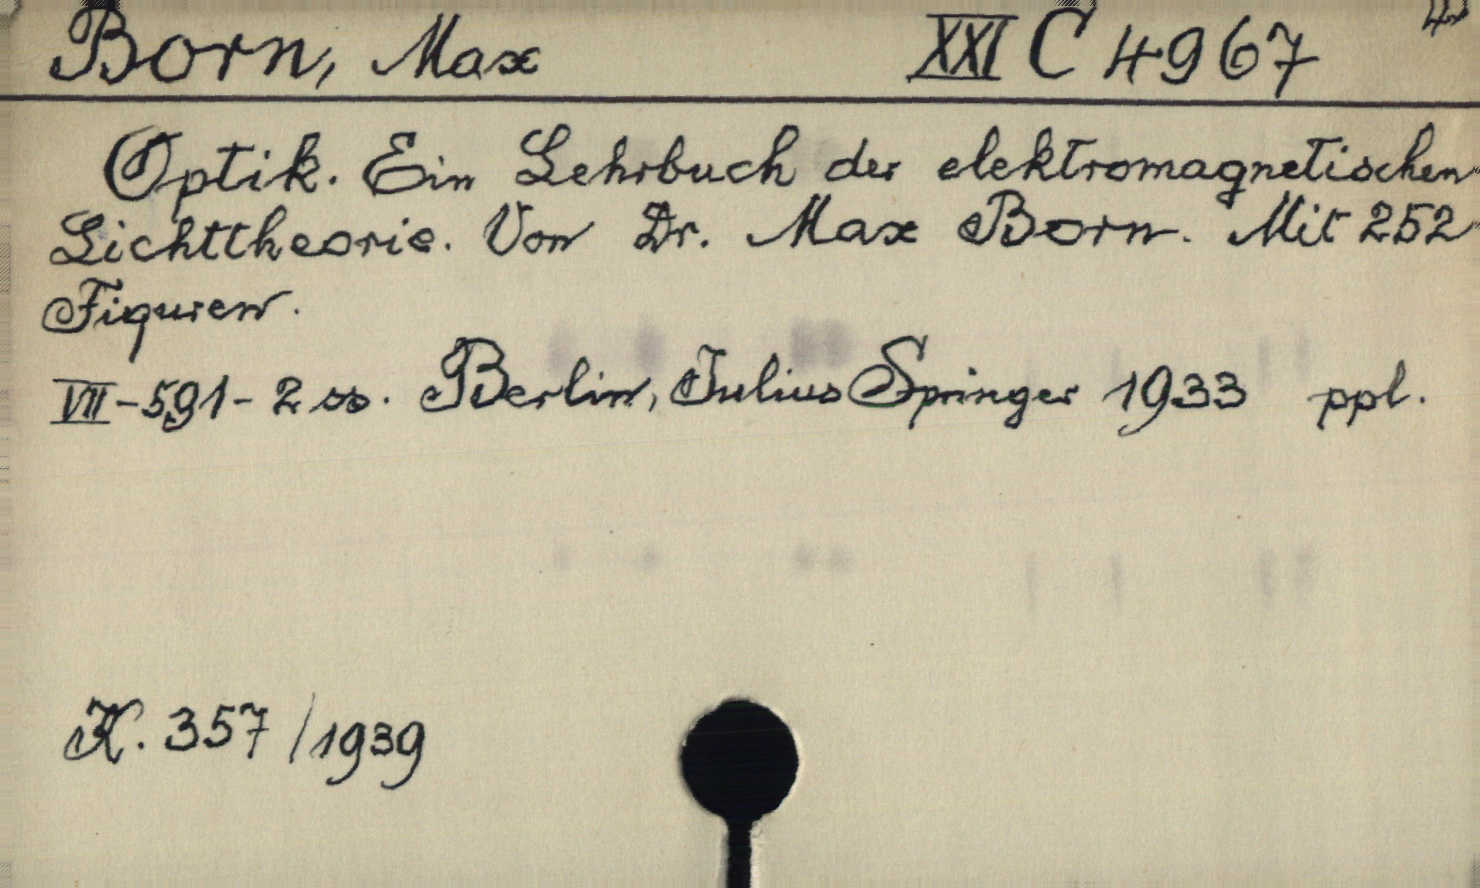 Born, Max XXI C 4967 4°
Optik. Ein Lehrbuch der elektromagnetischen
Lichttheorie. Von Dr. Max Born. Mit 252
Figuren.
VII-591-2 ss. Berlin, Julius Springer 1933 ppl.
K. 357/1939